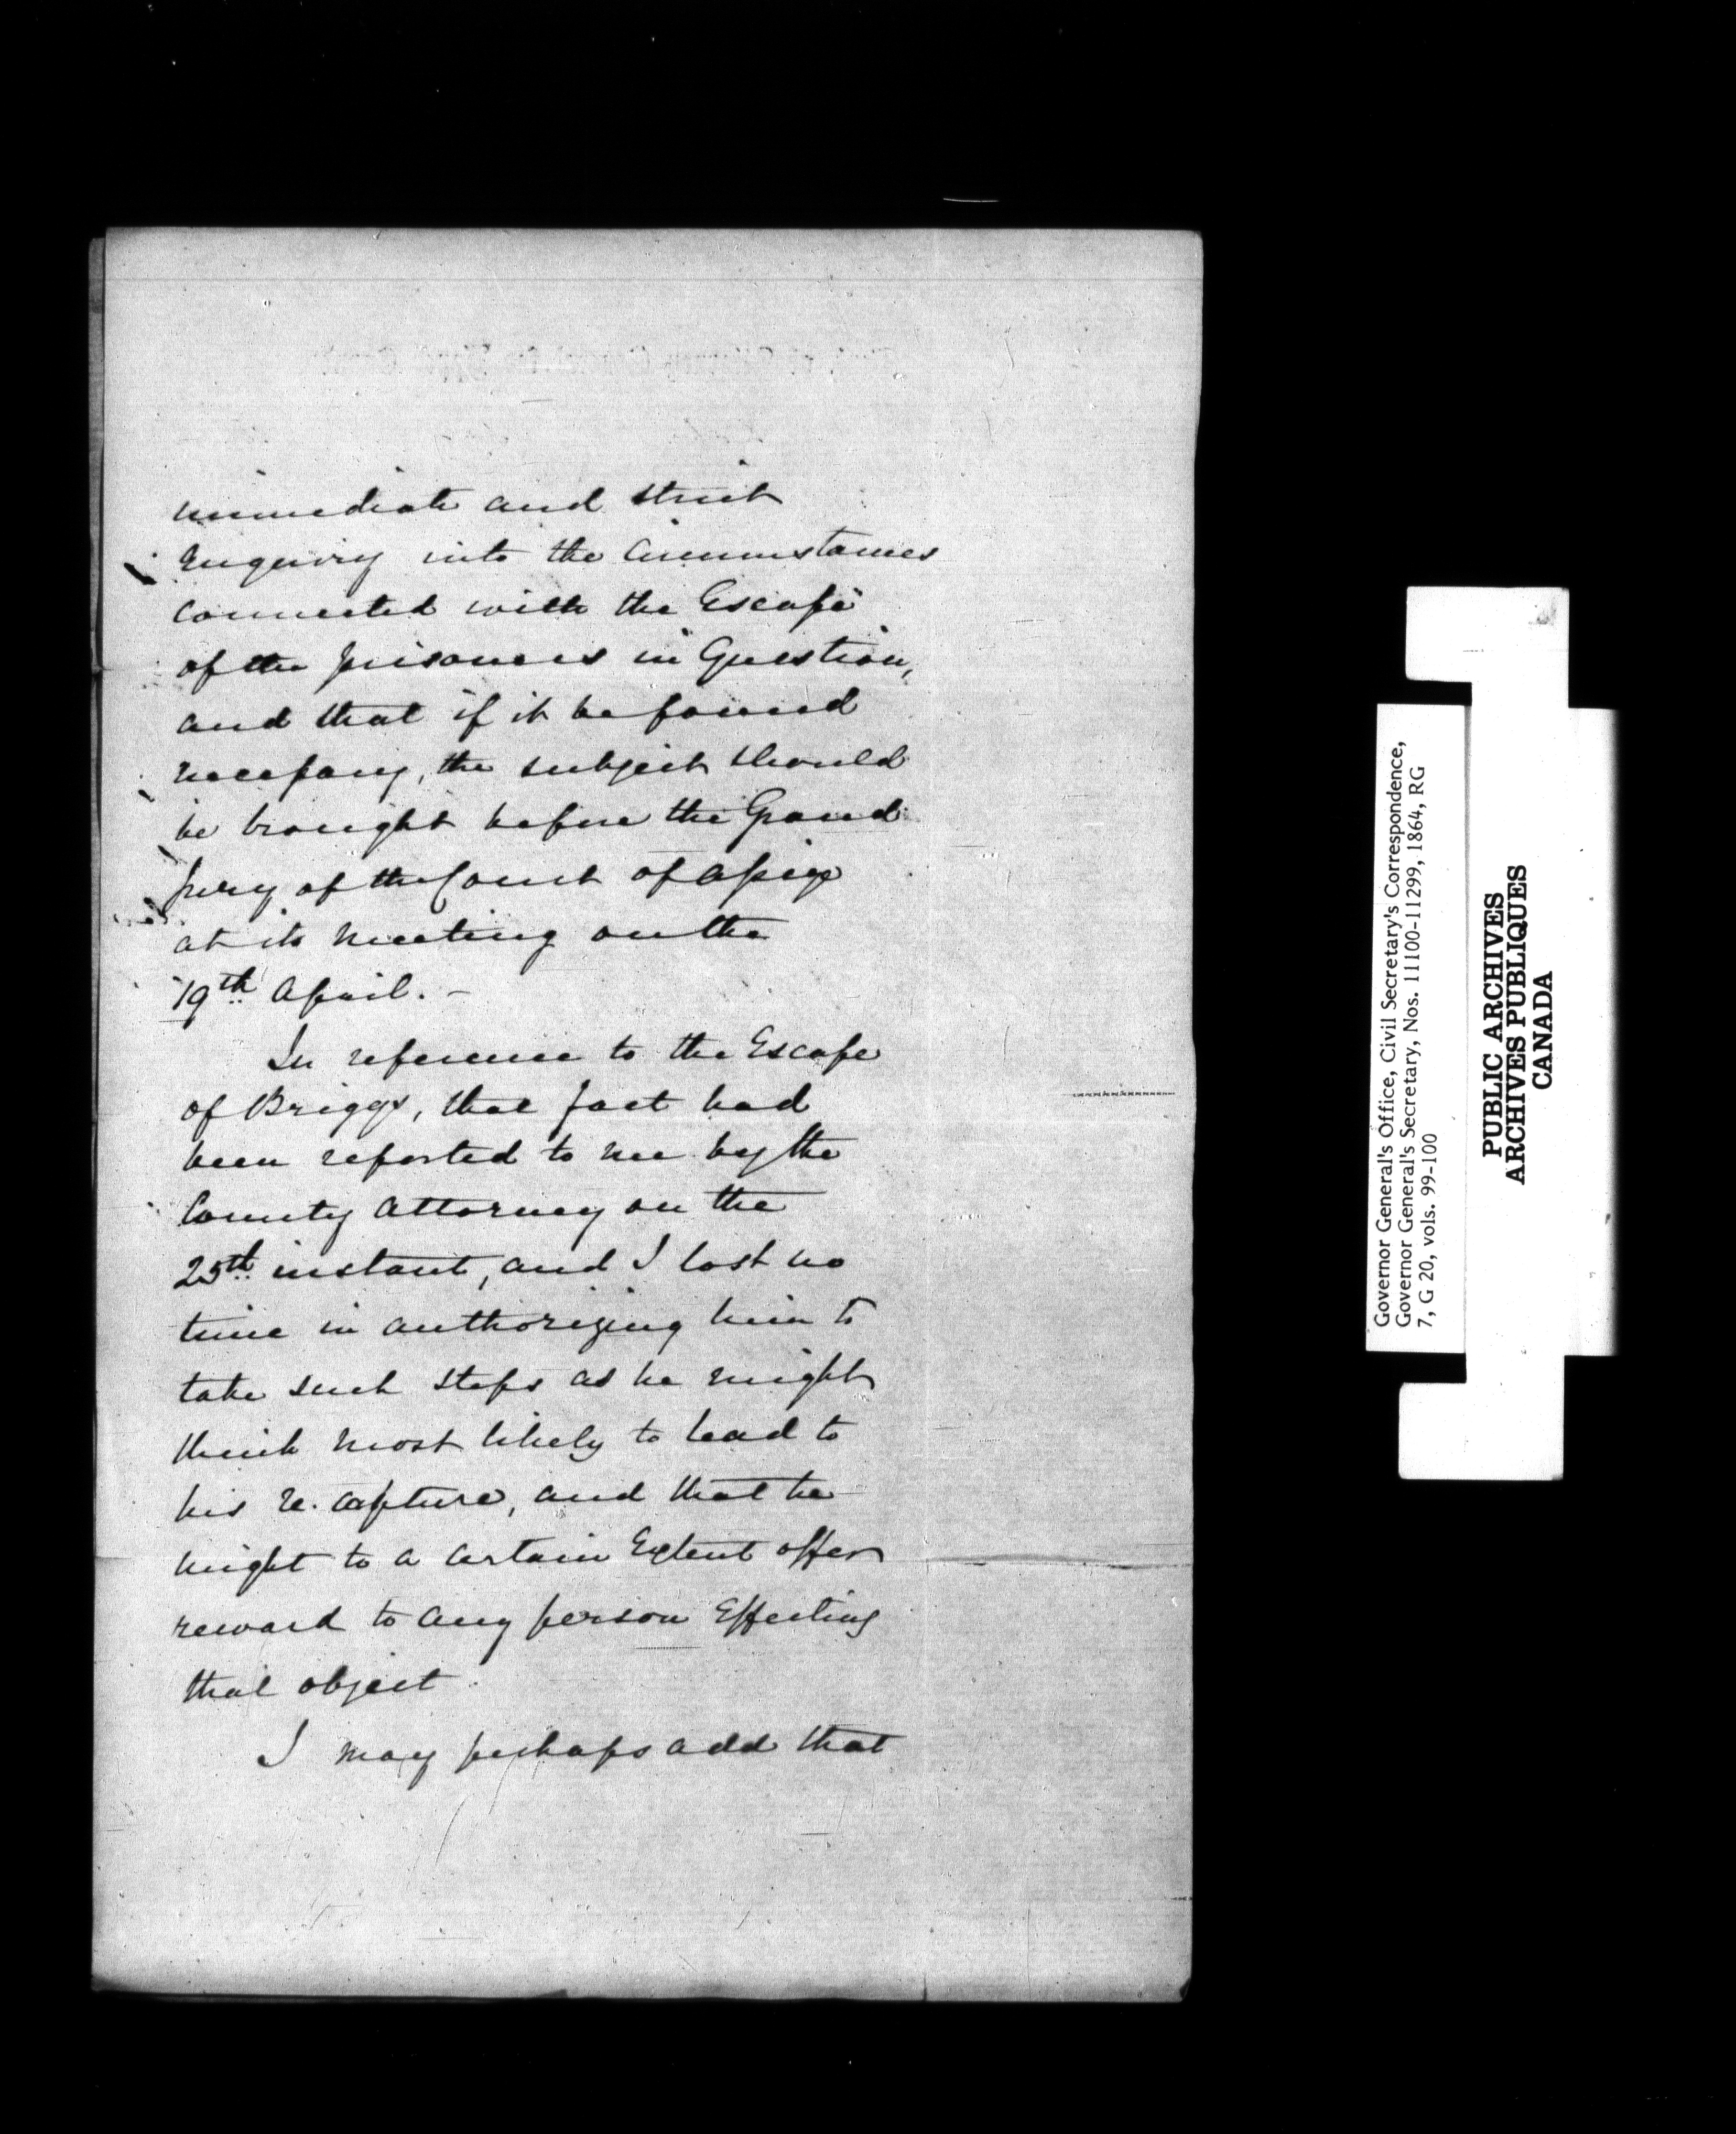 immediate and strict
enquiry into the Circumstances
connected with the Escape
of the prisoners in Question,
and that if it be found
necessary, the subject should
be brought before the Grand
jury of the Court of Assize
at its meeting on the
19th April. –
In reference to the Escape
of Briggs, that fact had
been reported to me by the
County Attorney on the
25th instant, and I lost no
time in authorizing him to
take such steps as he might
think most likely to lead to
his re-capture, and that he
might to a certain Extent offer
reward to any person Effecting
that object.
I may perhaps add that
Governor General's Office, Civil Secretary's Correspondence,
Governor General's Secretary, Nos. 11100-11299, 1864, RG
7, G 20, vols. 99-100
PUBLIC ARCHIVES
ARCHIVES PUBLIQUES
CANADA